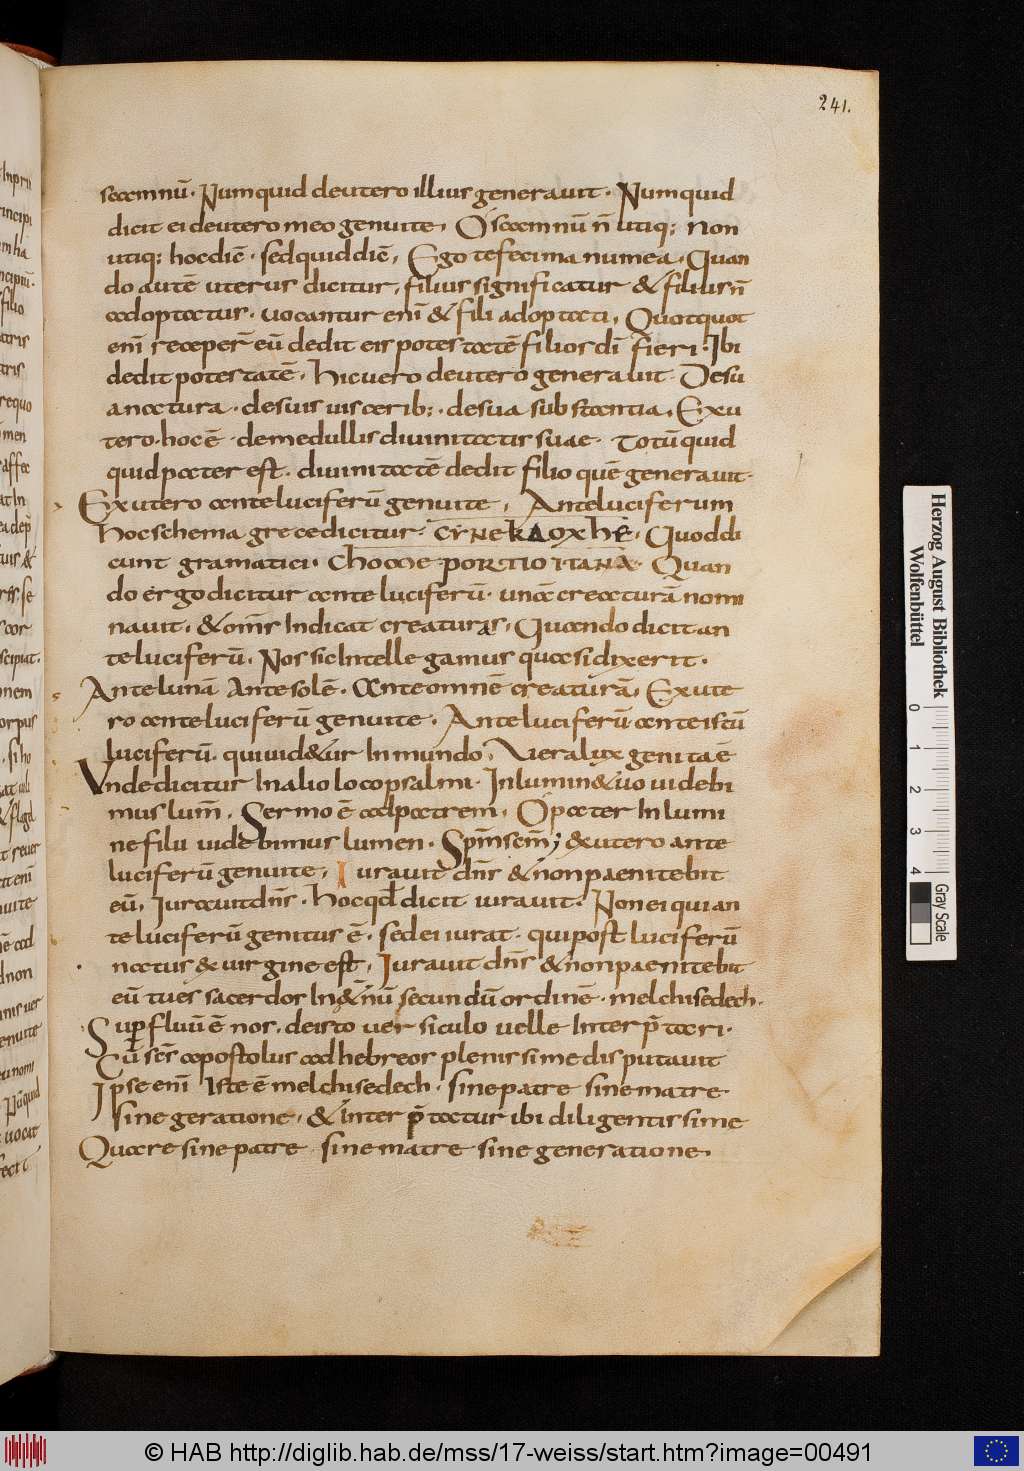 241.
secemnū. Numquid deutero illius generauit. Numquid
dicit ei deutero meo genuite. O secemnū n̄ utiq; non
utiq; hoc diē. sed quid diē. Ego te feci manu mea. Quan
do autē uterus dicitur, filius significatur & filius n̄
adoptatur. uocantur enī & fili adoptati, Quotquot
enī receper̄ eū dedit eis potestatē filios dī fieri. Ibi
dedit potestatē. hic uero deutero generauit. De su
a natura. de suis uiscerib;. de sua substantia. Ex u
tero. hoc ē de medullis diuinitatis suae. Totū quid
quid pater est. diuinitatē dedit filio quē generauit.
Ex utero ante luciferū genuite, Ante luciferum
hoc schema grece dicitur. CYNEKΔOXHE. Quod di
cunt gramatici. PORTIO Quan
do ergo dicitur ante luciferū. unā creaturā nomi
nauit. & om̄s Indicat creaturas. Quando dicit an
te luciferū. Nos sic Intellegamus quasi dixerit.
Ante lunā Ante solē. Ante omnē creaturā. Ex ute
ro ante luciferū genuite. Ante luciferū ante istū
luciferū. qui uid&ur In mundo. Uera lux genita ē
Unde dicitur In alio loco psalmi. In lumin& uo uidebi
mus lum̄. Sermo ē ad patrem. O pater In lumi
ne filii uidebimus lumen. Sp̄m sc̄m; ex utero ante
luciferū genuite. Iurauit dn̄s & non paenitebit
eū, Iurauit dn̄s. hoc qđ dicit iurauit. Non ei qui an
te luciferū genitus ē. sed ei iurat. qui post luciferū
natus ex uirgine est, Iurauit dn̄s & non paenitebit
eū tu es sacerdos In &nū secundū ordinē. melchisedech.
Supfluū ē nos. de isto uersiculo uelle Interp̄tari.
Cū sc̄s apostolus ad hebreos plenissime disputauit
Ipse enī Iste ē melchisedech. sine patre sine matre.
sine geratione. & interp̄tatur ibi diligentissime
Quare sine patre sine matre sine generatione.
Herzog August Bibliothek
Wolfenbüttel
0 1 2 3 4
Gray Scale
© HAB http://diglib.hab.de/mss/17-weiss/start.htm?image=00491